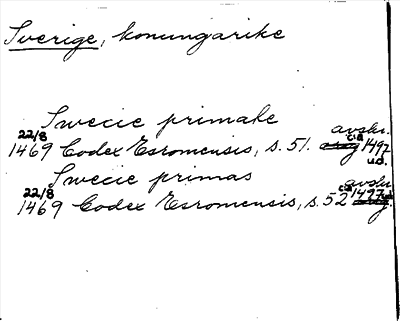 Sverige, konungarike
Swecie primate
22/8 1469 Codex Esromensis, s. 51. avskr. ca 1497 u.d.
Swecie primas
22/8 1469 Codex Esromensis, s. 52 avskr. ca 1497